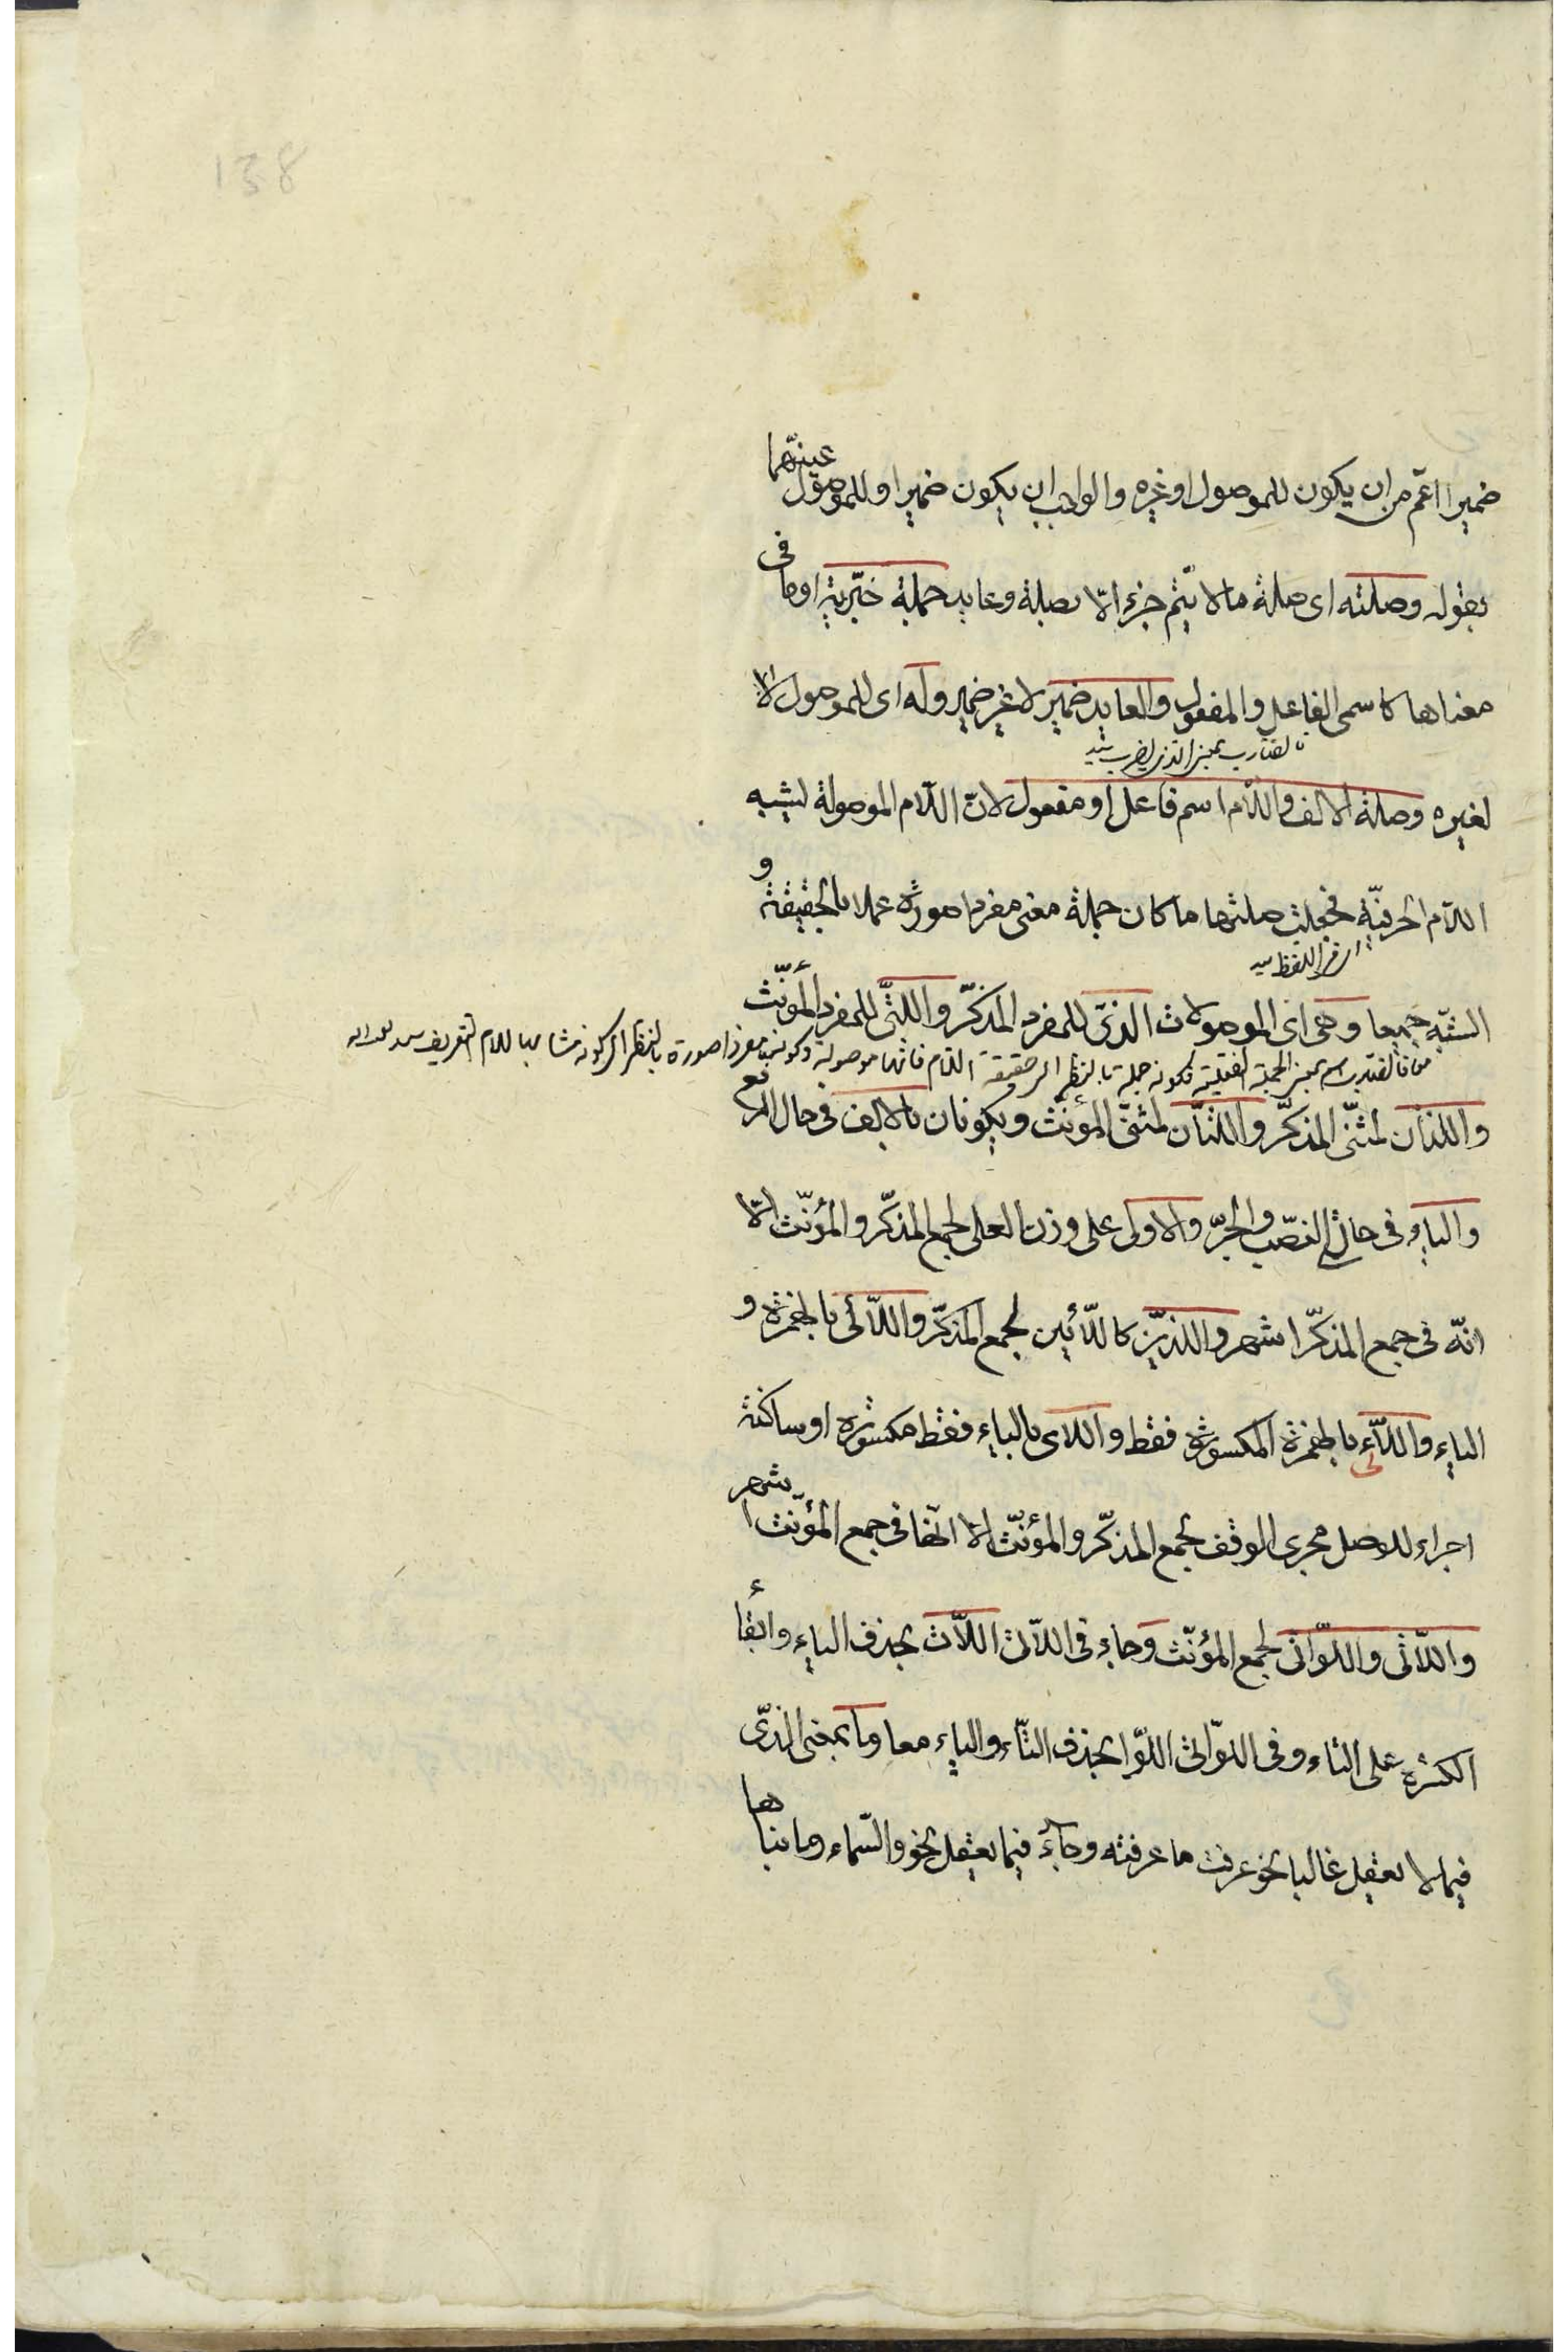 138
ضميرا اعمّ من ان يكون للموصول او غيره والواجب ان يكون ضميرا وللموصول عيّنهما
بقوله وصلته اى صلة ما لا يتمّ جزء الّا بصلة وعايد جملة خبّرية او ما فى
معناها كاسمى الفاعل والمفعول والعايد ضمير لا غير ضمير وله اى للموصول لا
بمعنى الذى يضرب
لغيره وصلة الالف واللّام اسم فاعل او مفعول لانّ اللّام الموصولة ليشبه
اللّام الحرفيّة فجعلت صلتها ما كان جملة معنى مفردا صورة عملا بالحقيقة و
فى اللفظ
الشبّه جميعا وهى اى الموصولات الذىّ للمفرد المذكّر واللتىّ للمفرد المؤنّث
بمعنى الجملة الفعلية فكونه جملة بالنظر الى حقيقة اللام فانها موصولة وكونها مفردا صورة بالنظر الى كونه مشابها للام التعريف
واللذان لمثنّى المذكّر واللتان لمثنّى المؤنّث ويكونان بالالف فى حال الرفع
والياء فى حال النصّب والجرّ والاولى على وزن العلى لجمع المذكّر والمؤنّث الّا
انّه فى جمع المذكّر اشهر واللذيّن كاللّائين لجمع المذكّر واللّائى بالهمزة و
الياء واللّاء بالهمزة المكسورة فقط واللاى بالياء فقط مكسورة او ساكنة
اجراء للوصل مجرى الوقف لجمع المذكّر والمؤنّث الّا انّها فى جمع المؤنّث اشهر
واللّاتى واللوّاتى لجمع المؤنّث وجاء فى اللّاتى اللّات بحذف الياء وابقاء
الكسرة على التاء وفى اللوّاتى اللوّا بحذف التّاء والياء معا وما بمعنى الذىّ
فيما لا يعقل غالبا نحو عرفت ما عرفته وجاء فيما يعقل نحو والسّماء وما بناها